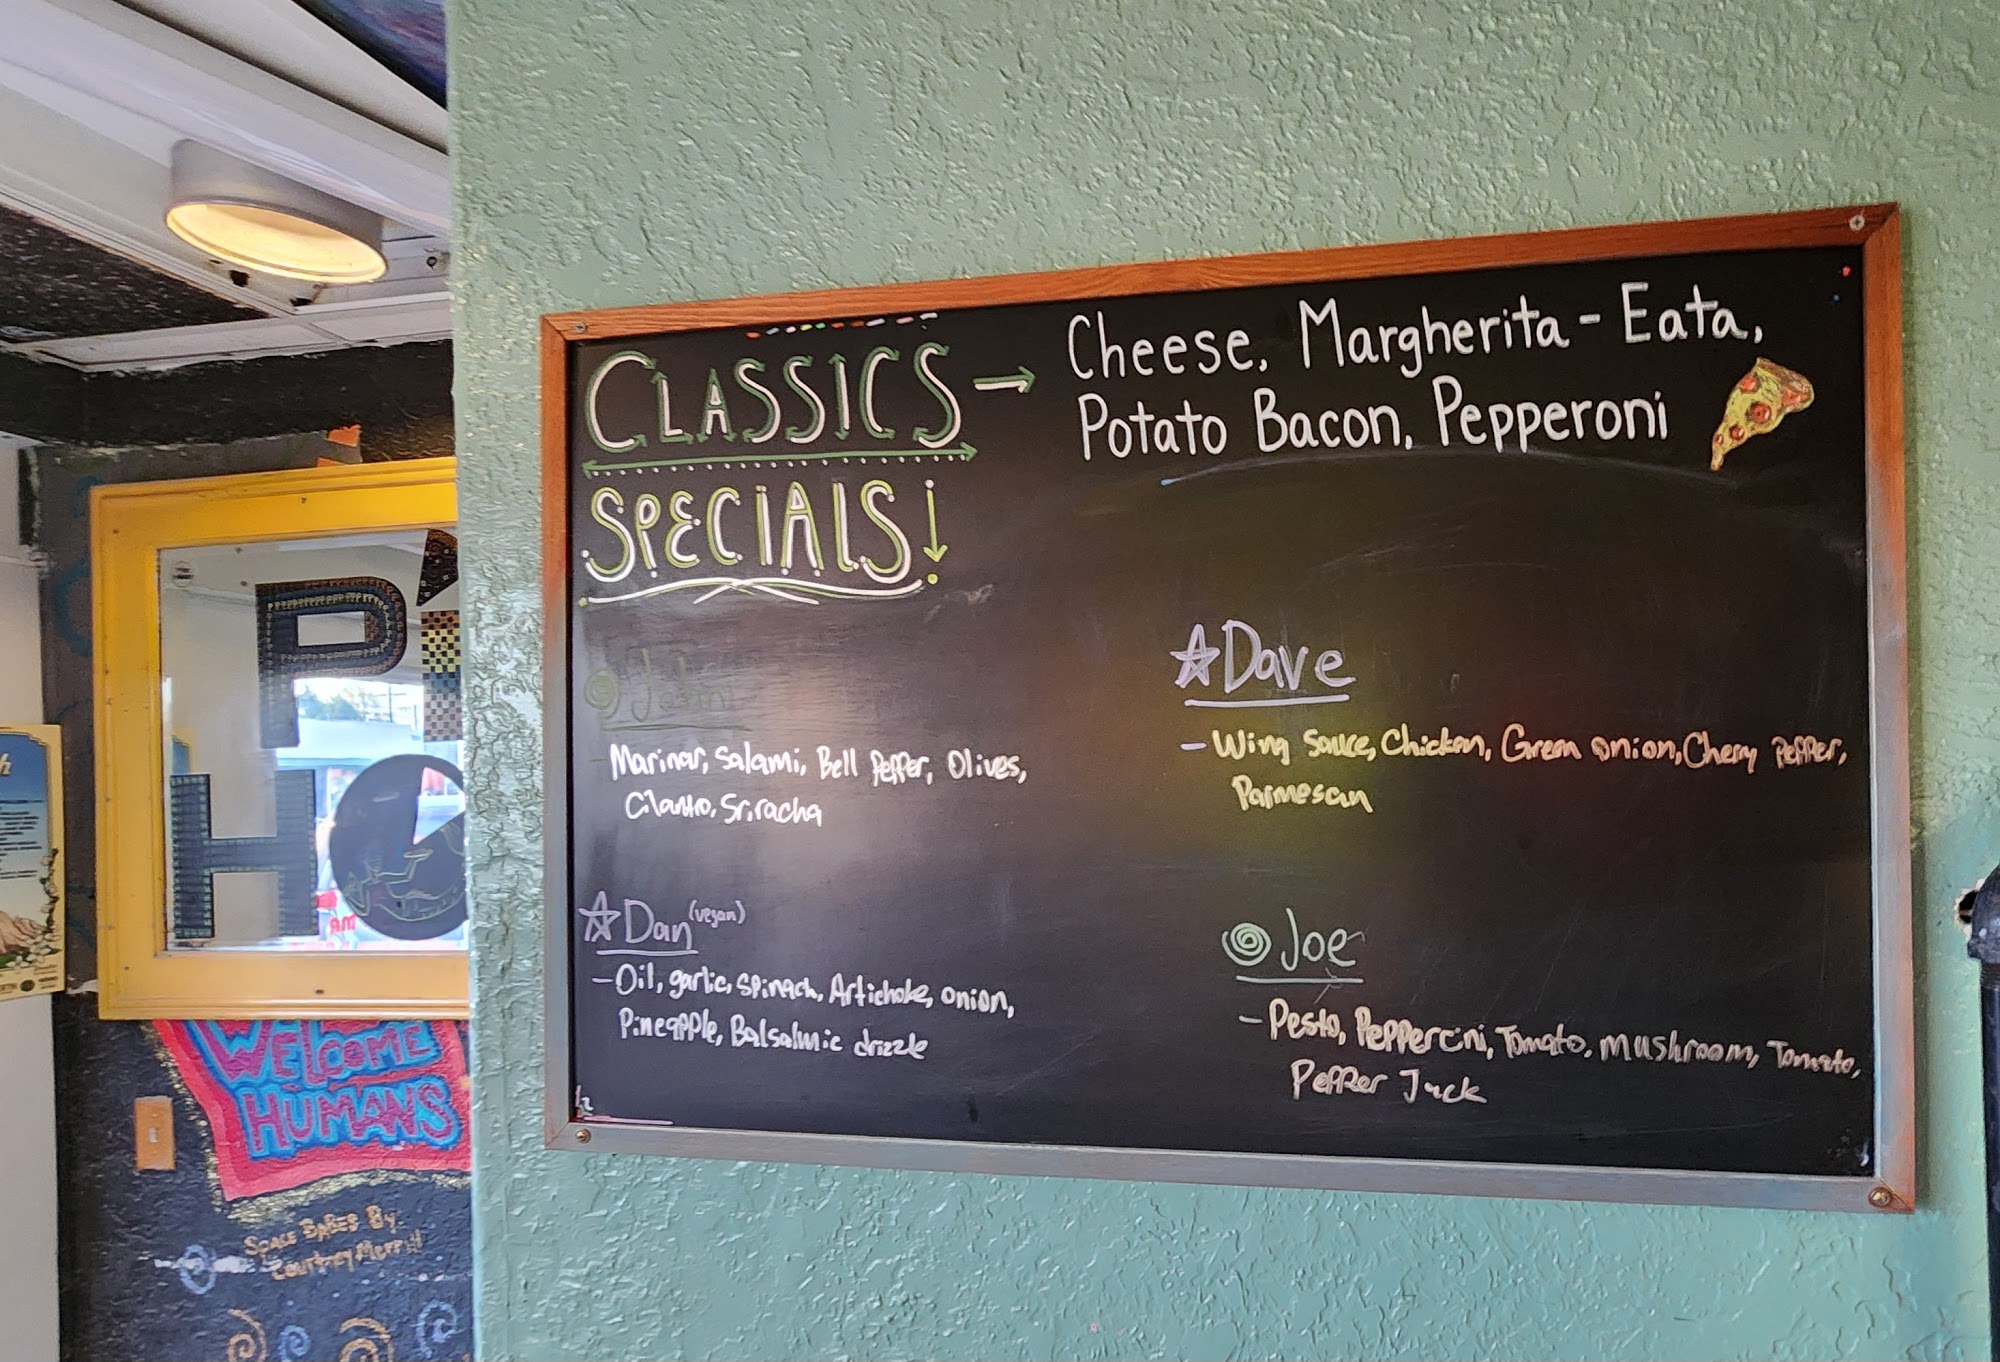 CLASSICS → Cheese, Margherita - Eata,
Potato Bacon, Pepperoni
SPECIALS!
John
Marinar, Salami, Bell Pepper, Olives,
Cilantro, Sriracha
Dave
- Wing Sauce, Chicken, Green onion, Cherry Pepper,
Parmesan
Dan (vegan)
- Oil, garlic, spinach, Artichoke, onion,
Pineapple, Balsalmic drizzle
Joe
- Pesto, Peppercini, Tomato, mushroom, Tomato,
Pepper Jack
P
HO
WELCOME
HUMANS
SPACE BABES By
Courtney Merrill